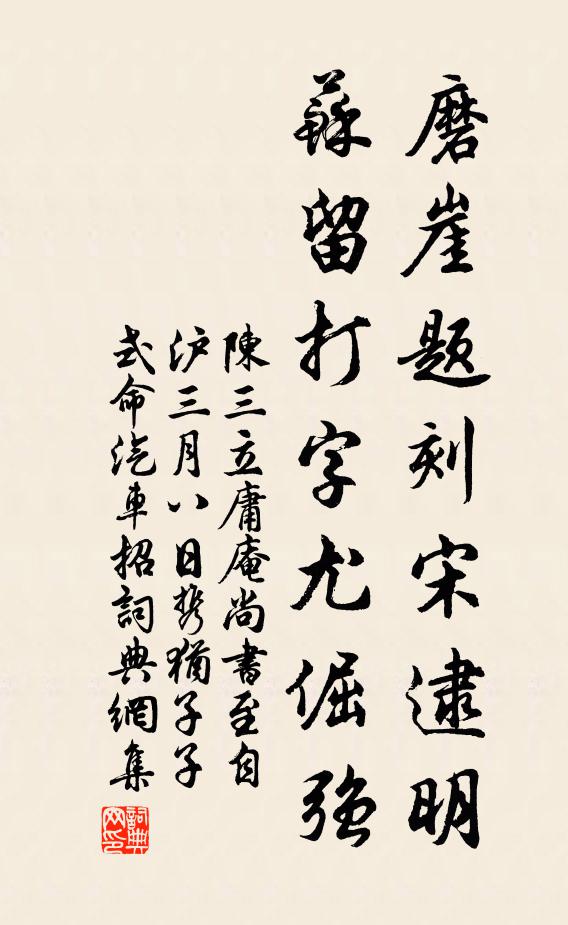 磨崖題刻宋逮明
蘇留打字尤倔強
陳三立庸庵尚書至自
沪三月八日携猶子子
式命汽車招詞典網集
詞典
网印